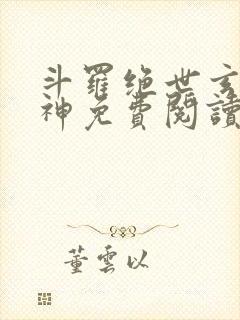 斗羅绝世玄
神免費閱讀
董雲以